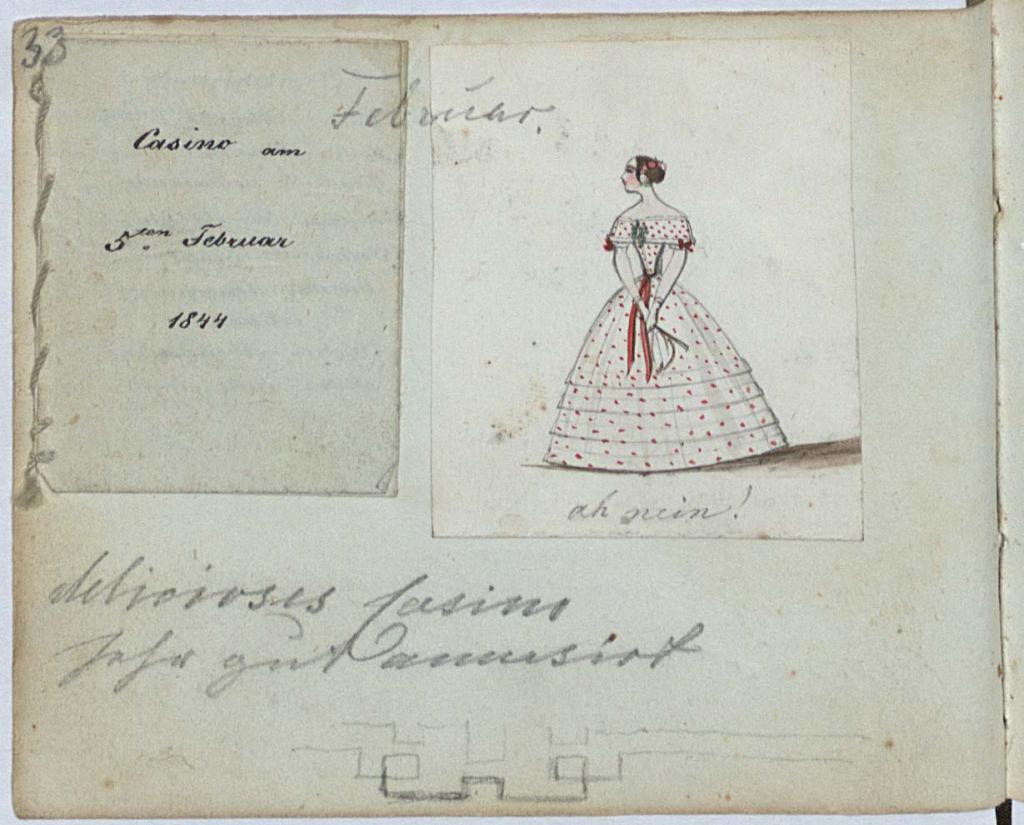 33
Februar.
Casino am
5ten Februar
1844
ah nein!
delicioses Casino
sehr gut amusirt